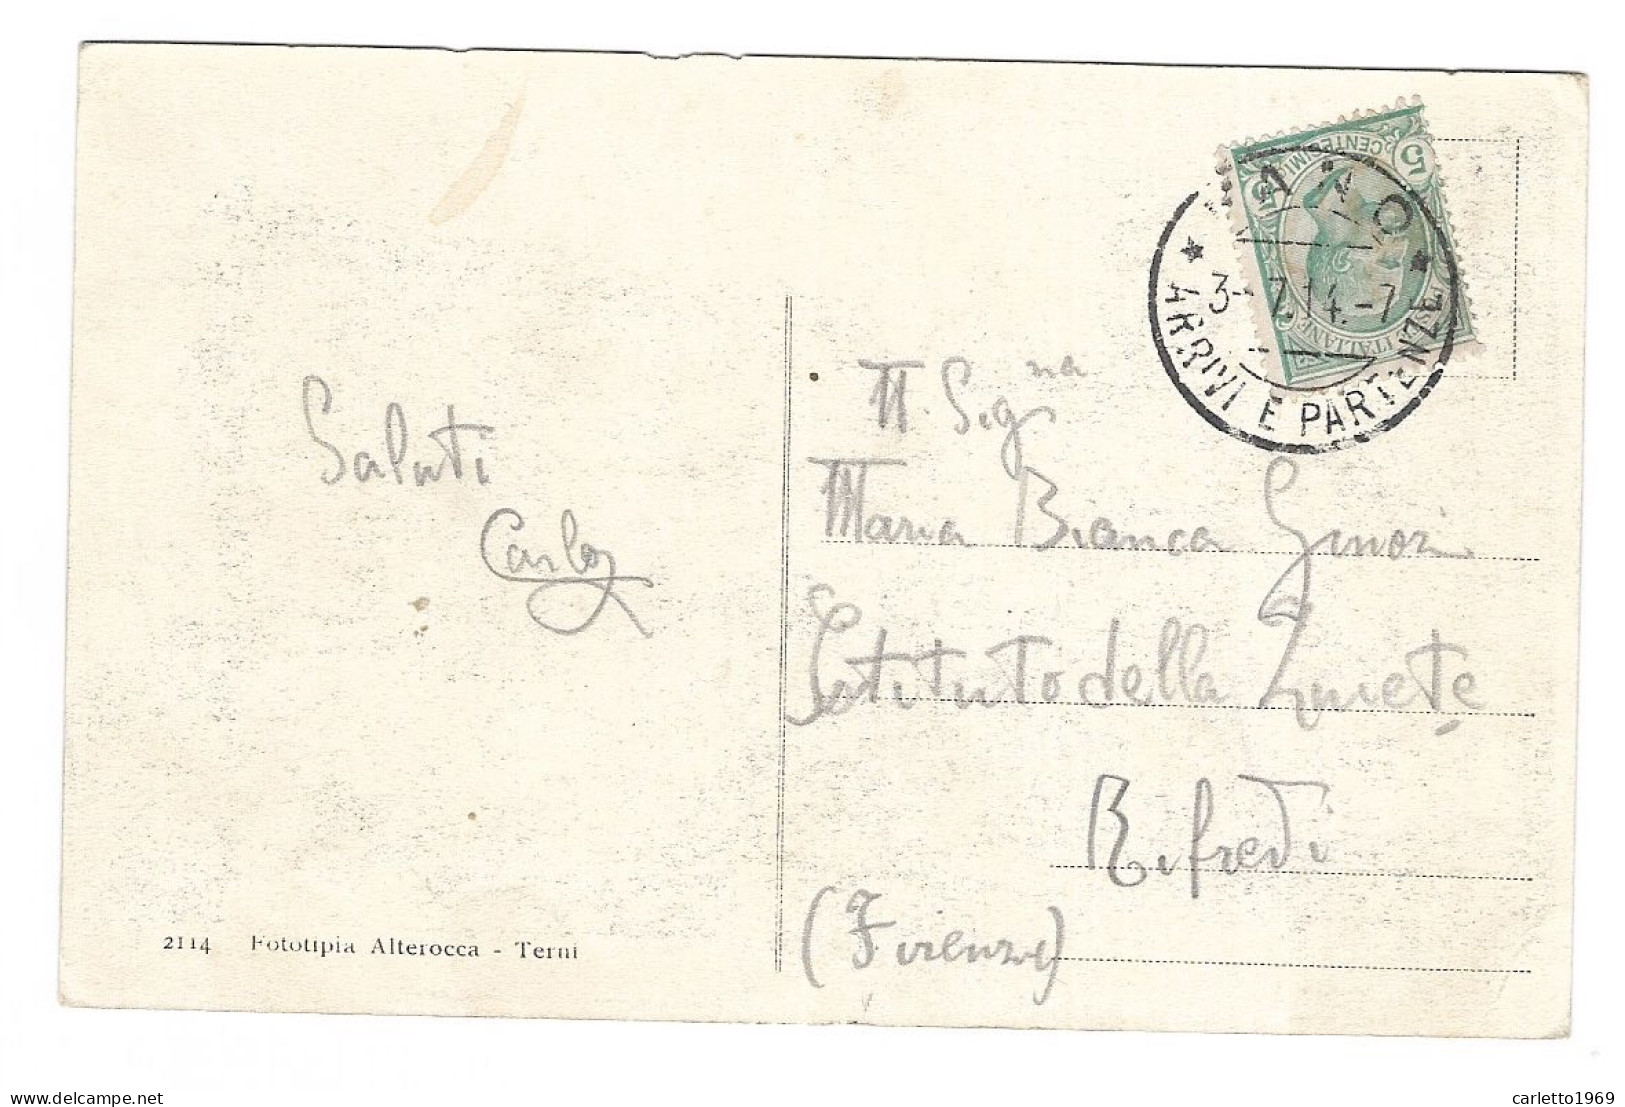 5 CENTESIMI 5
POSTE ITALIANE
ANO
3-7.14.-7
* ARRIVI E PARTENZE *
Saluti
Carlo
Signa
Maria Bianca Ginori
Istituto della Quiete
Rifredi
(Firenze)
2114 Fototipia Alterocca - Terni
www.delcampe.net
carletto1969